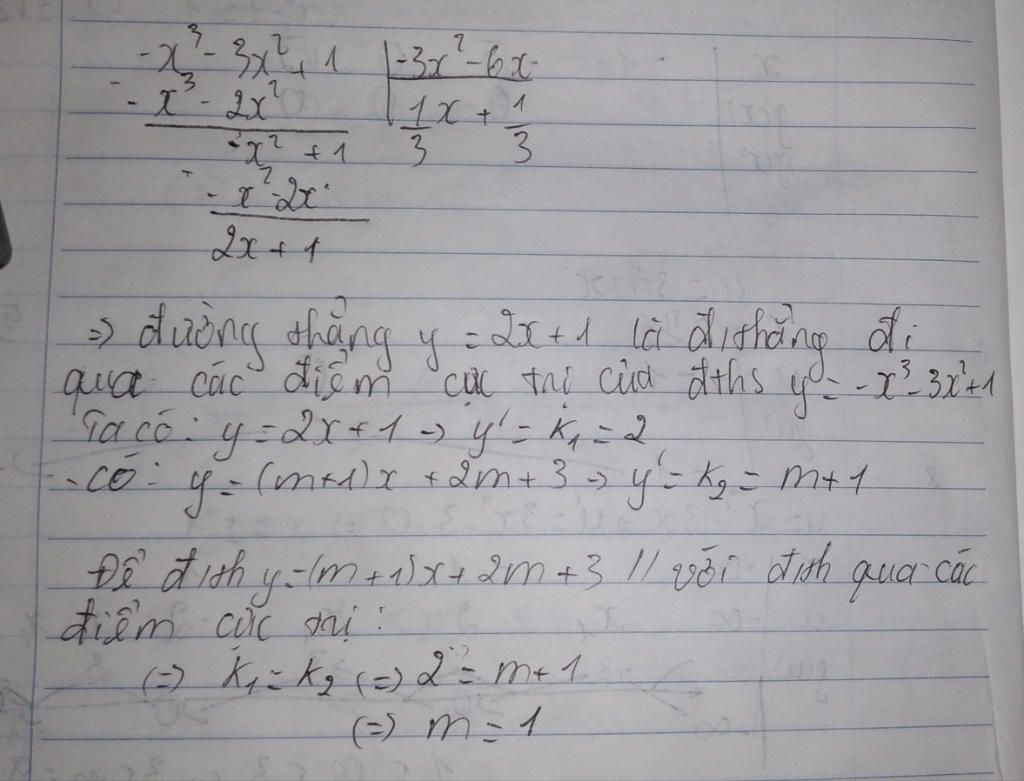 -x³ - 3x² + 1 | -3x² - 6x
- -x³ - 2x² | 1/3 x + 1/3
-x² + 1
- -x² - 2x
2x + 1
=> đường thẳng y = 2x + 1 là đ/thẳng đi
qua các điểm cực trị của đths y = -x³ - 3x² + 1
Ta có: y = 2x + 1 → y' = k₁ = 2
- có: y = (m+1)x + 2m + 3 → y' = k₂ = m + 1
Để đ/th y = (m+1)x + 2m + 3 // với đ/th qua các
điểm cực trị:
(=) k₁ = k₂ (=) 2 = m + 1
(=) m = 1